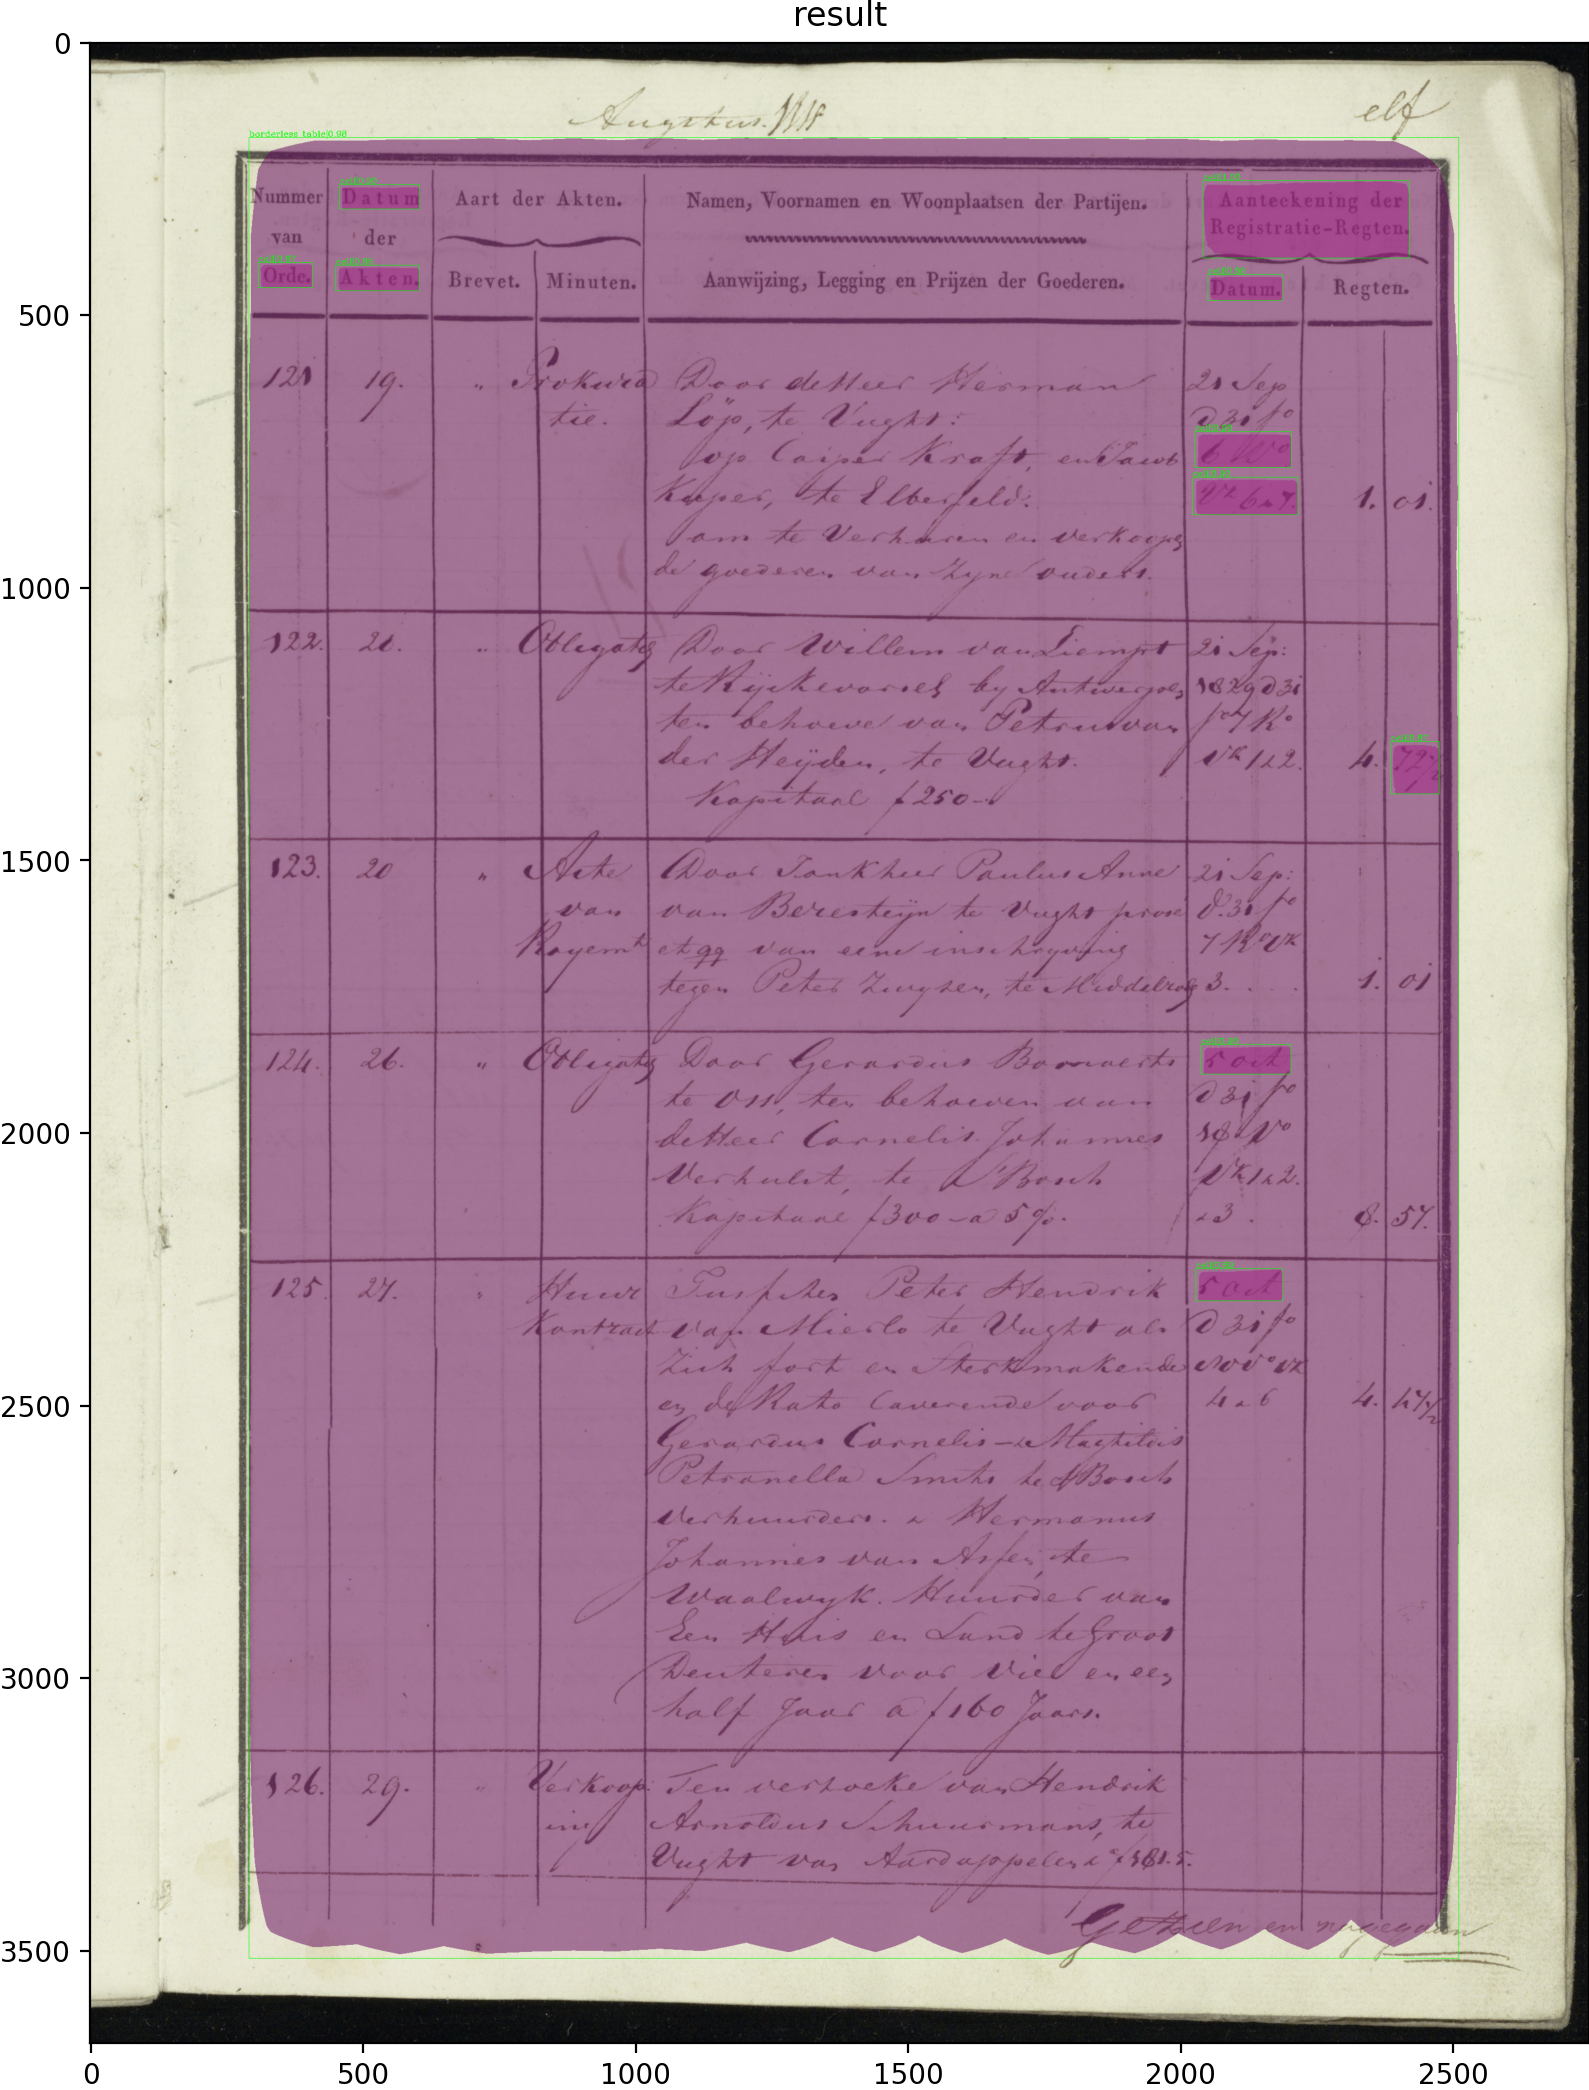 result
borderless_table|0.98
elf
Nummer van Orde.
Datum der Akten.
Aart der Akten.
Brevet. Minuten.
Namen, Voornamen en Woonplaatsen der Partijen.
Aanwijzing, Legging en Prijzen der Goederen.
Aanteekening der
Registratie-Regten.
Datum. Regten.
121 19. " Prokura
tie.
Door de Heer Herman
Löp, te Vught:
op Casper Kraft, en Jacob
Kuper, te Elberfeld.
om te Verhuren en verkoopen
de goederen van zyne ouders.
21 Sep
d 31 fo
6 Vo
Vk 6 a 7.
1. 01.
122. 20. " Obligatie
Door Willem van Liempt
te Ryckevorsel by Antwerpen
ten behoeve van Petrus van
der Heijden, te Vught.
Kapitaal f 250-
21 Sep:
1829 d 31
fo 7 Ro
Vk 1 a 2.
4.
123. 20 " Acte
van
Royemt
Door Jonkheer Paulus Anne
van Beresteijn te Vught
et qq van eene inschryving
tegen Peter
21 Sep:
d. 31 fo
7 Ro Vk
3. . . .
1. 01
124. 26. " Obligatie
Door Gerardus
te Oss, ten behoeven van
de Heer Cornelis Johannes
Verhulst, te s'Bosch
Kapitaal f 300 - a 5%.
5 oct
d 31 fo
18 Vo
Vk 1 a 2.
a 3.
8. 57.
125. 27. " Huur
Kontract
Tusschen Peter Hendrik
van Mierlo te Vught als
Zich fort en Sterkmakende
en de Rato Caverende voor
Gerardus Cornelis - &
Petronella Smits te s'Bosch
Verhuurders. &amp; Hermanus
Johannes van te
Waalwyk. Huurder van
Een Huis en Land te Groot
Deuteren voor vier en een
half Jaar a f 160 Jaars.
5 oct
d 31 fo
Vo Vk
4 a 6
4.
126. 29. " Verkoop
ing
Ten verzoeke van Hendrik
Arnoldus Schuurmans, te
Vught van Aardappelen
Gezien en nagegaan
0
500
1000
1500
2000
2500
3000
3500
0 500 1000 1500 2000 2500